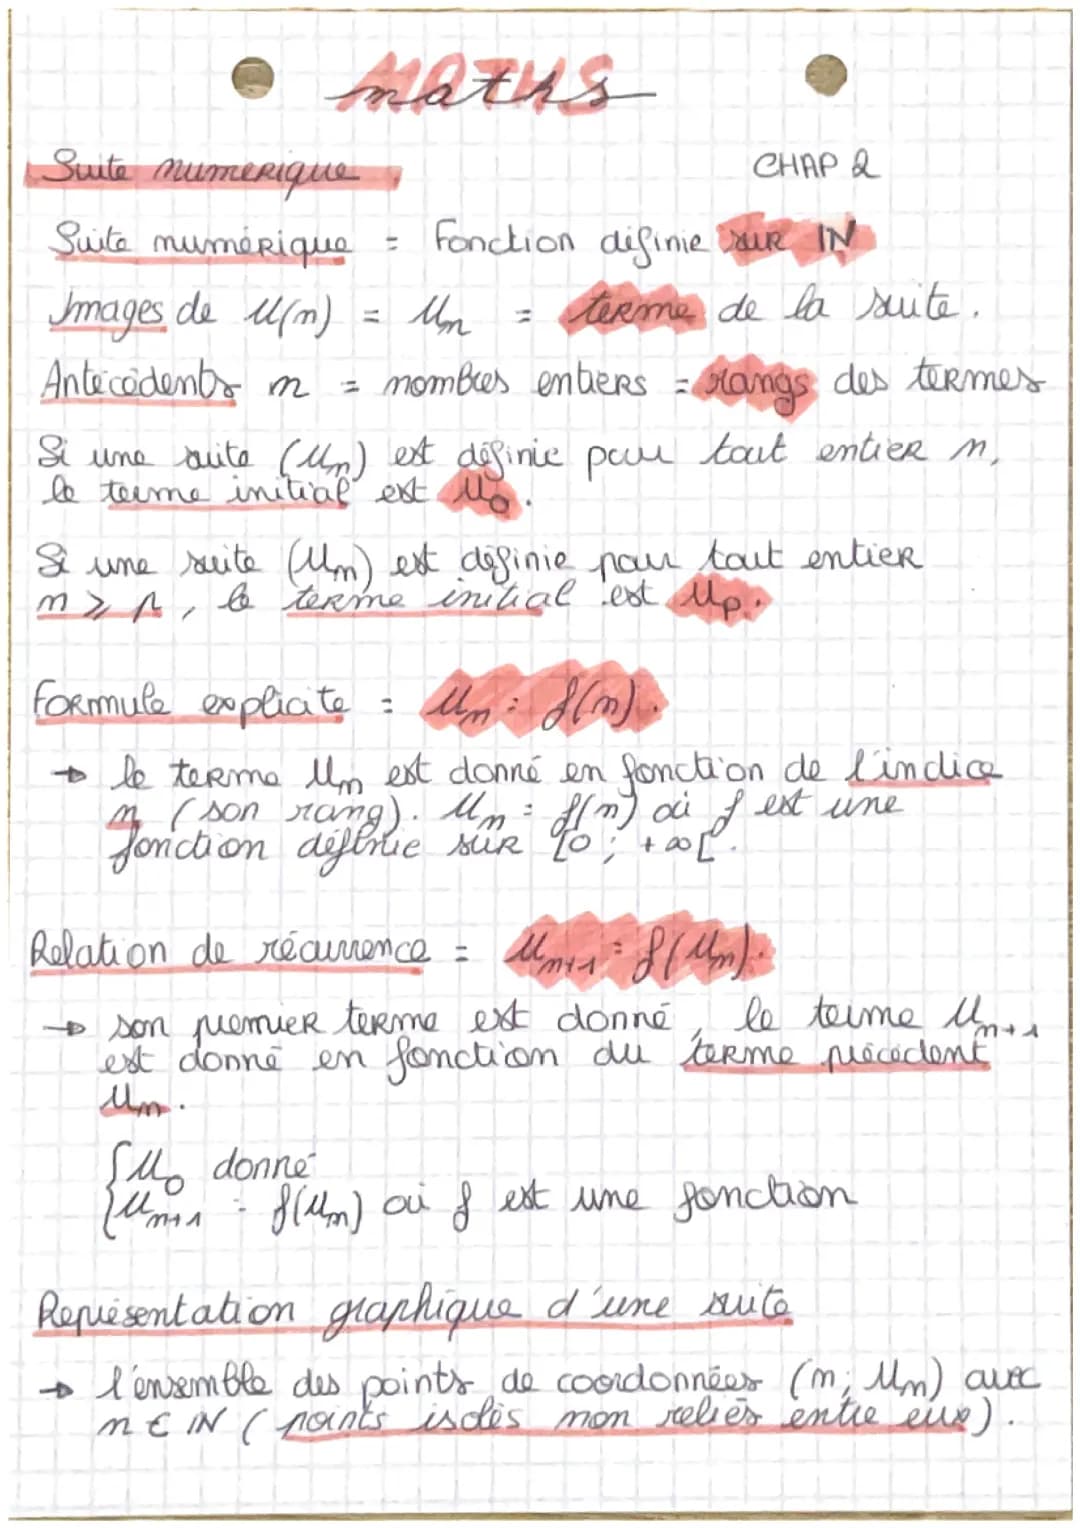 maths
Suite numérique
CHAP 2
Suite numérique = Fonction définie sur ℕ
Images de U(n) = Un = terme de la suite.
Antécédents n = nombres entiers = rangs des termes
Si une suite (Un) est définie pour tout entier n,
le terme initial est U₀.
Si une suite (Un) est définie pour tout entier
n ⩾ p, le terme initial est Up.
Formule explicite = Un = f(n).
→ le terme Un est donné en fonction de l'indice
n (son rang). Un = f(n) où f est une
fonction définie sur [0 ; +∞[.
Relation de récurrence = Un+1 = f(Un).
→ son premier terme est donné, le terme Un+1
est donné en fonction du terme précédent
Un.
{U₀ donné
{Un+1 = f(Un) où f est une fonction
Représentation graphique d'une suite
→ l'ensemble des points de coordonnées (n; Un) avec
n ∈ ℕ (points isolés non reliés entre eux).